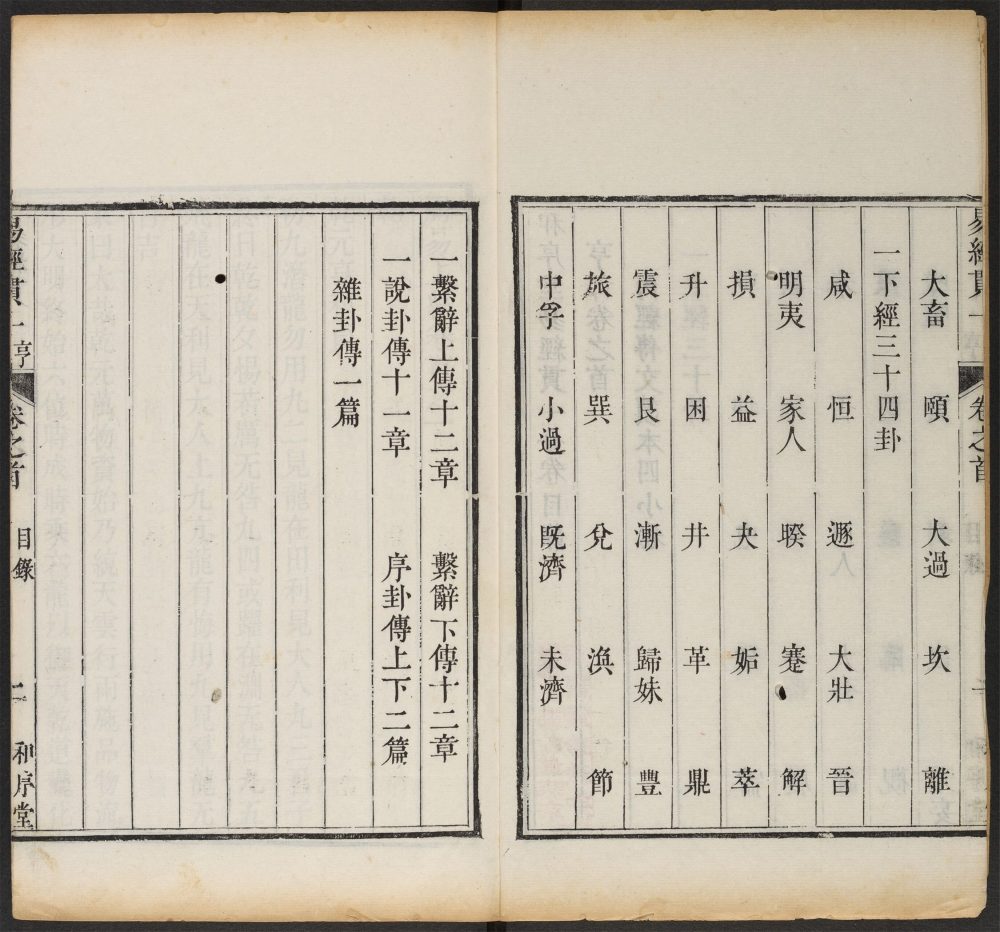 易經貫一亨 卷之首
大畜 頤 大過 坎 離
一下經三十四卦
咸 恒 遯 大壯 晉
明夷 家人 暌 蹇 解
損 益 夬 姤 萃
升 困 井 革 鼎
震 艮 漸 歸妹 豐
旅 巽 兌 渙 節
中孚 小過 既濟 未濟
一繫辭上傳十二章 繫辭下傳十二章
一說卦傳十一章 序卦傳上下二篇
雜卦傳一篇
易經貫一亨 卷之首 目錄 二 和序堂